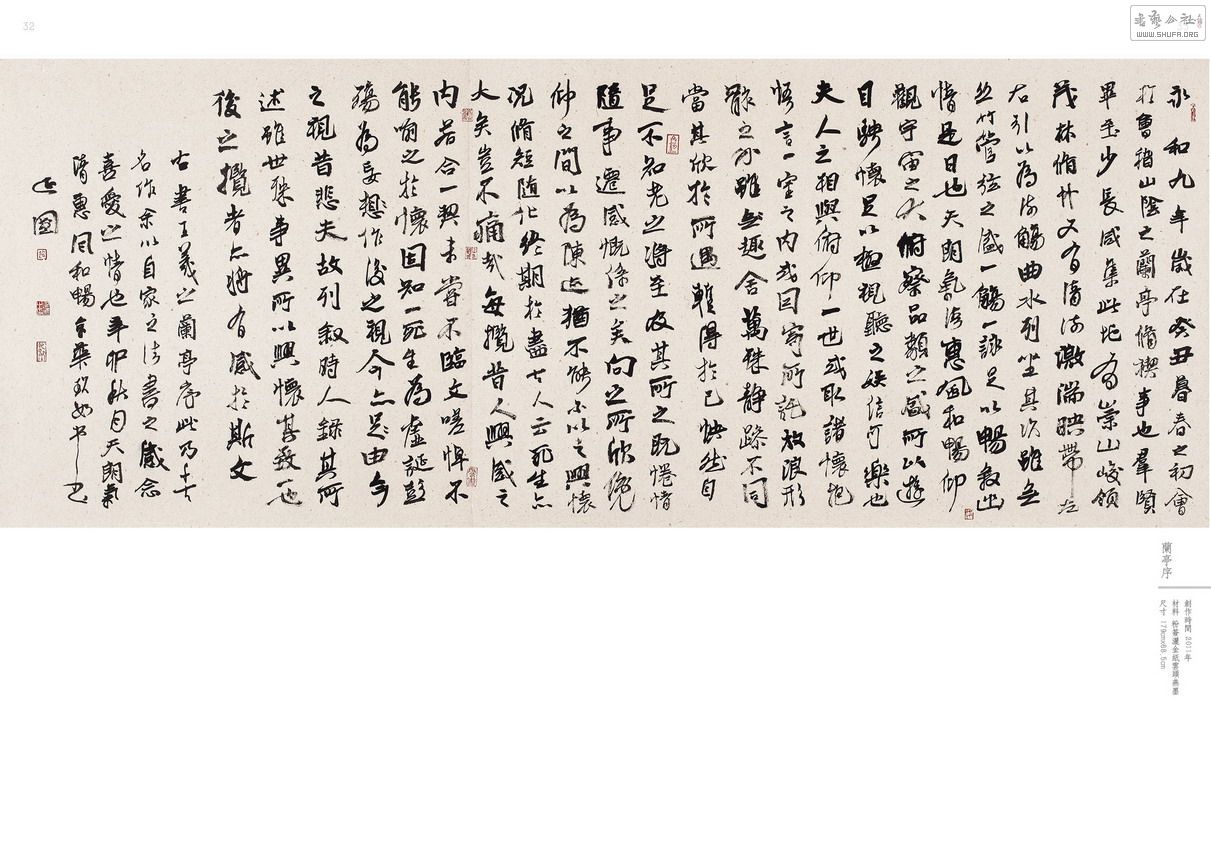 永和九年歲在癸丑暮春之初會
於會稽山陰之蘭亭脩禊事也羣賢
畢至少長咸集此地有崇山峻領
茂林脩竹又有清流激湍映帶左
右引以為流觴曲水列坐其次雖無
絲竹管弦之盛一觴一詠足以暢敘幽
情是日也天朗氣清惠風和暢仰
觀宇宙之大俯察品類之盛所以遊
目騁懷足以極視聽之娛信可樂也
夫人之相與俯仰一世或取諸懷抱
悟言一室之內或因寄所託放浪形
骸之外雖無趣舍萬殊靜躁不同
當其欣於所遇蹔得於己快然自
足不知老之將至及其所之既惓情
隨事遷感慨係之矣向之所欣俛
仰之間以為陳迹猶不能不以之興懷
況脩短隨化終期於盡古人云死生亦
大矣豈不痛哉每攬昔人興感之
由若合一契未嘗不臨文嗟悼不
能喻之於懷固知一死生為虛誕彭
殤為妄想作後之視今亦足由今
之視昔悲夫故列敘時人錄其所
述雖世殊事異所以興懷其致一也
後之攬者亦將有感於斯文
右書王羲之蘭亭序此乃千古
名作余以自家之法書之感念
喜愛之情也辛卯秋月天朗氣
清惠風和暢
國
蘭亭序
創作時間 2011年
尺寸 179cmx68.5cm
32
書藝公社
WWW.SHUFA.ORG